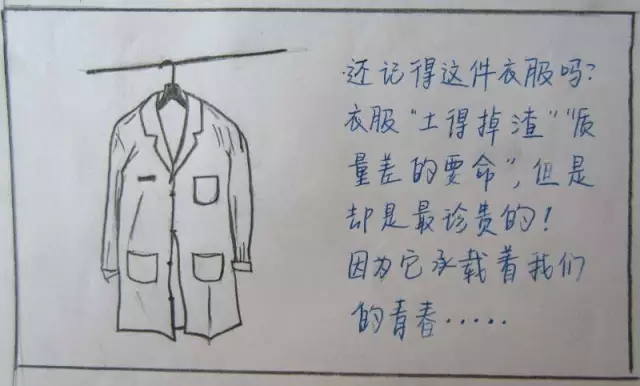 还记得这件衣服吗?
衣服“土得掉渣”“质
量差的要命”,但是
却是最珍贵的!
因为它承载着我们
的青春·····